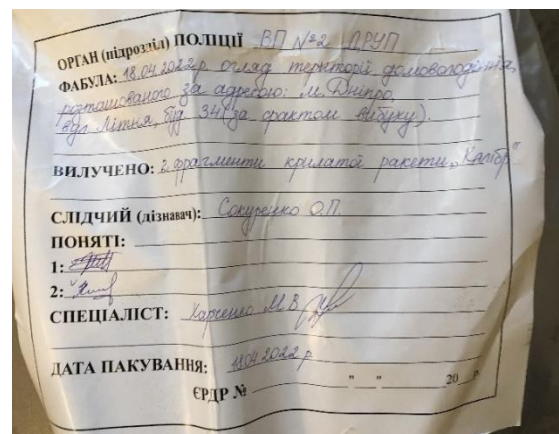 ОРГАН (підрозділ) ПОЛІЦІЇ ВП №2 ДРУП
ФАБУЛА: 18.04.2022р огляд території домоволодіння,
розташованого за адресою: м. Дніпро,
вул. Літня, буд 34 (за фактом вибуху).
ВИЛУЧЕНО: 2 фрагменти крилатої ракети „Калібр"
СЛІДЧИЙ (дізнавач): Сокуренко О.П.
ПОНЯТІ:
1:
2:
СПЕЦІАЛІСТ: Харченко М.В
ДАТА ПАКУВАННЯ: 18.04.2022 р
ЄРДР № " " 20 р